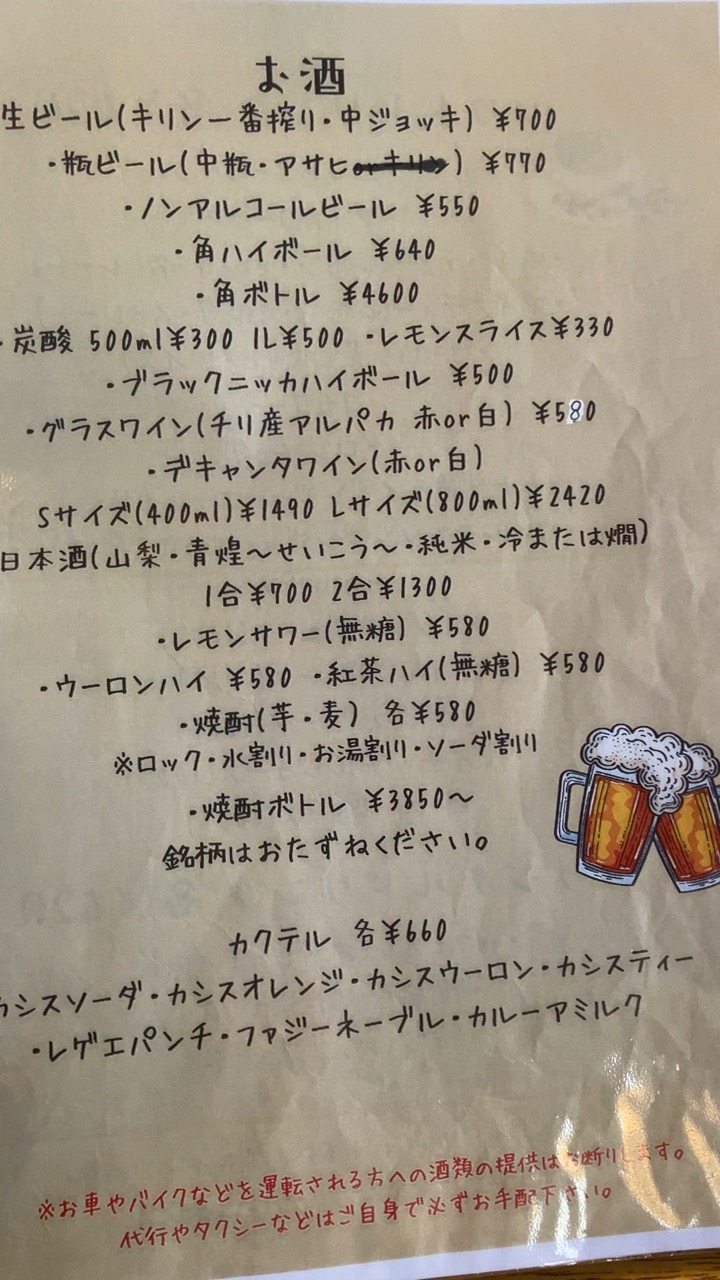 お酒
生ビール(キリン一番搾り・中ジョッキ) ¥700
・瓶ビール(中瓶・アサヒorキリン) ¥770
・ノンアルコールビール ¥550
・角ハイボール ¥640
・角ボトル ¥4600
・炭酸 500ml¥300 1L¥500 ・レモンスライス¥330
・ブラックニッカハイボール ¥500
・グラスワイン(チリ産アルパカ 赤or白) ¥580
・デキャンタワイン(赤or白)
Sサイズ(400ml)¥1490 Lサイズ(800ml)¥2420
日本酒(山梨・青煌〜せいこう〜・純米・冷または燗)
1合¥700 2合¥1300
・レモンサワー(無糖) ¥580
・ウーロンハイ ¥580 ・紅茶ハイ(無糖) ¥580
・焼酎(芋・麦) 各¥580
※ロック・水割り・お湯割り・ソーダ割り
・焼酎ボトル ¥3850〜
銘柄はおたずねください。
カクテル 各¥660
カシスソーダ・カシスオレンジ・カシスウーロン・カシスティー
・レゲエパンチ・ファジーネーブル・カルーアミルク
※お車やバイクなどを運転される方への酒類の提供はお断りします。
代行やタクシーなどはご自身で必ずお手配下さい。